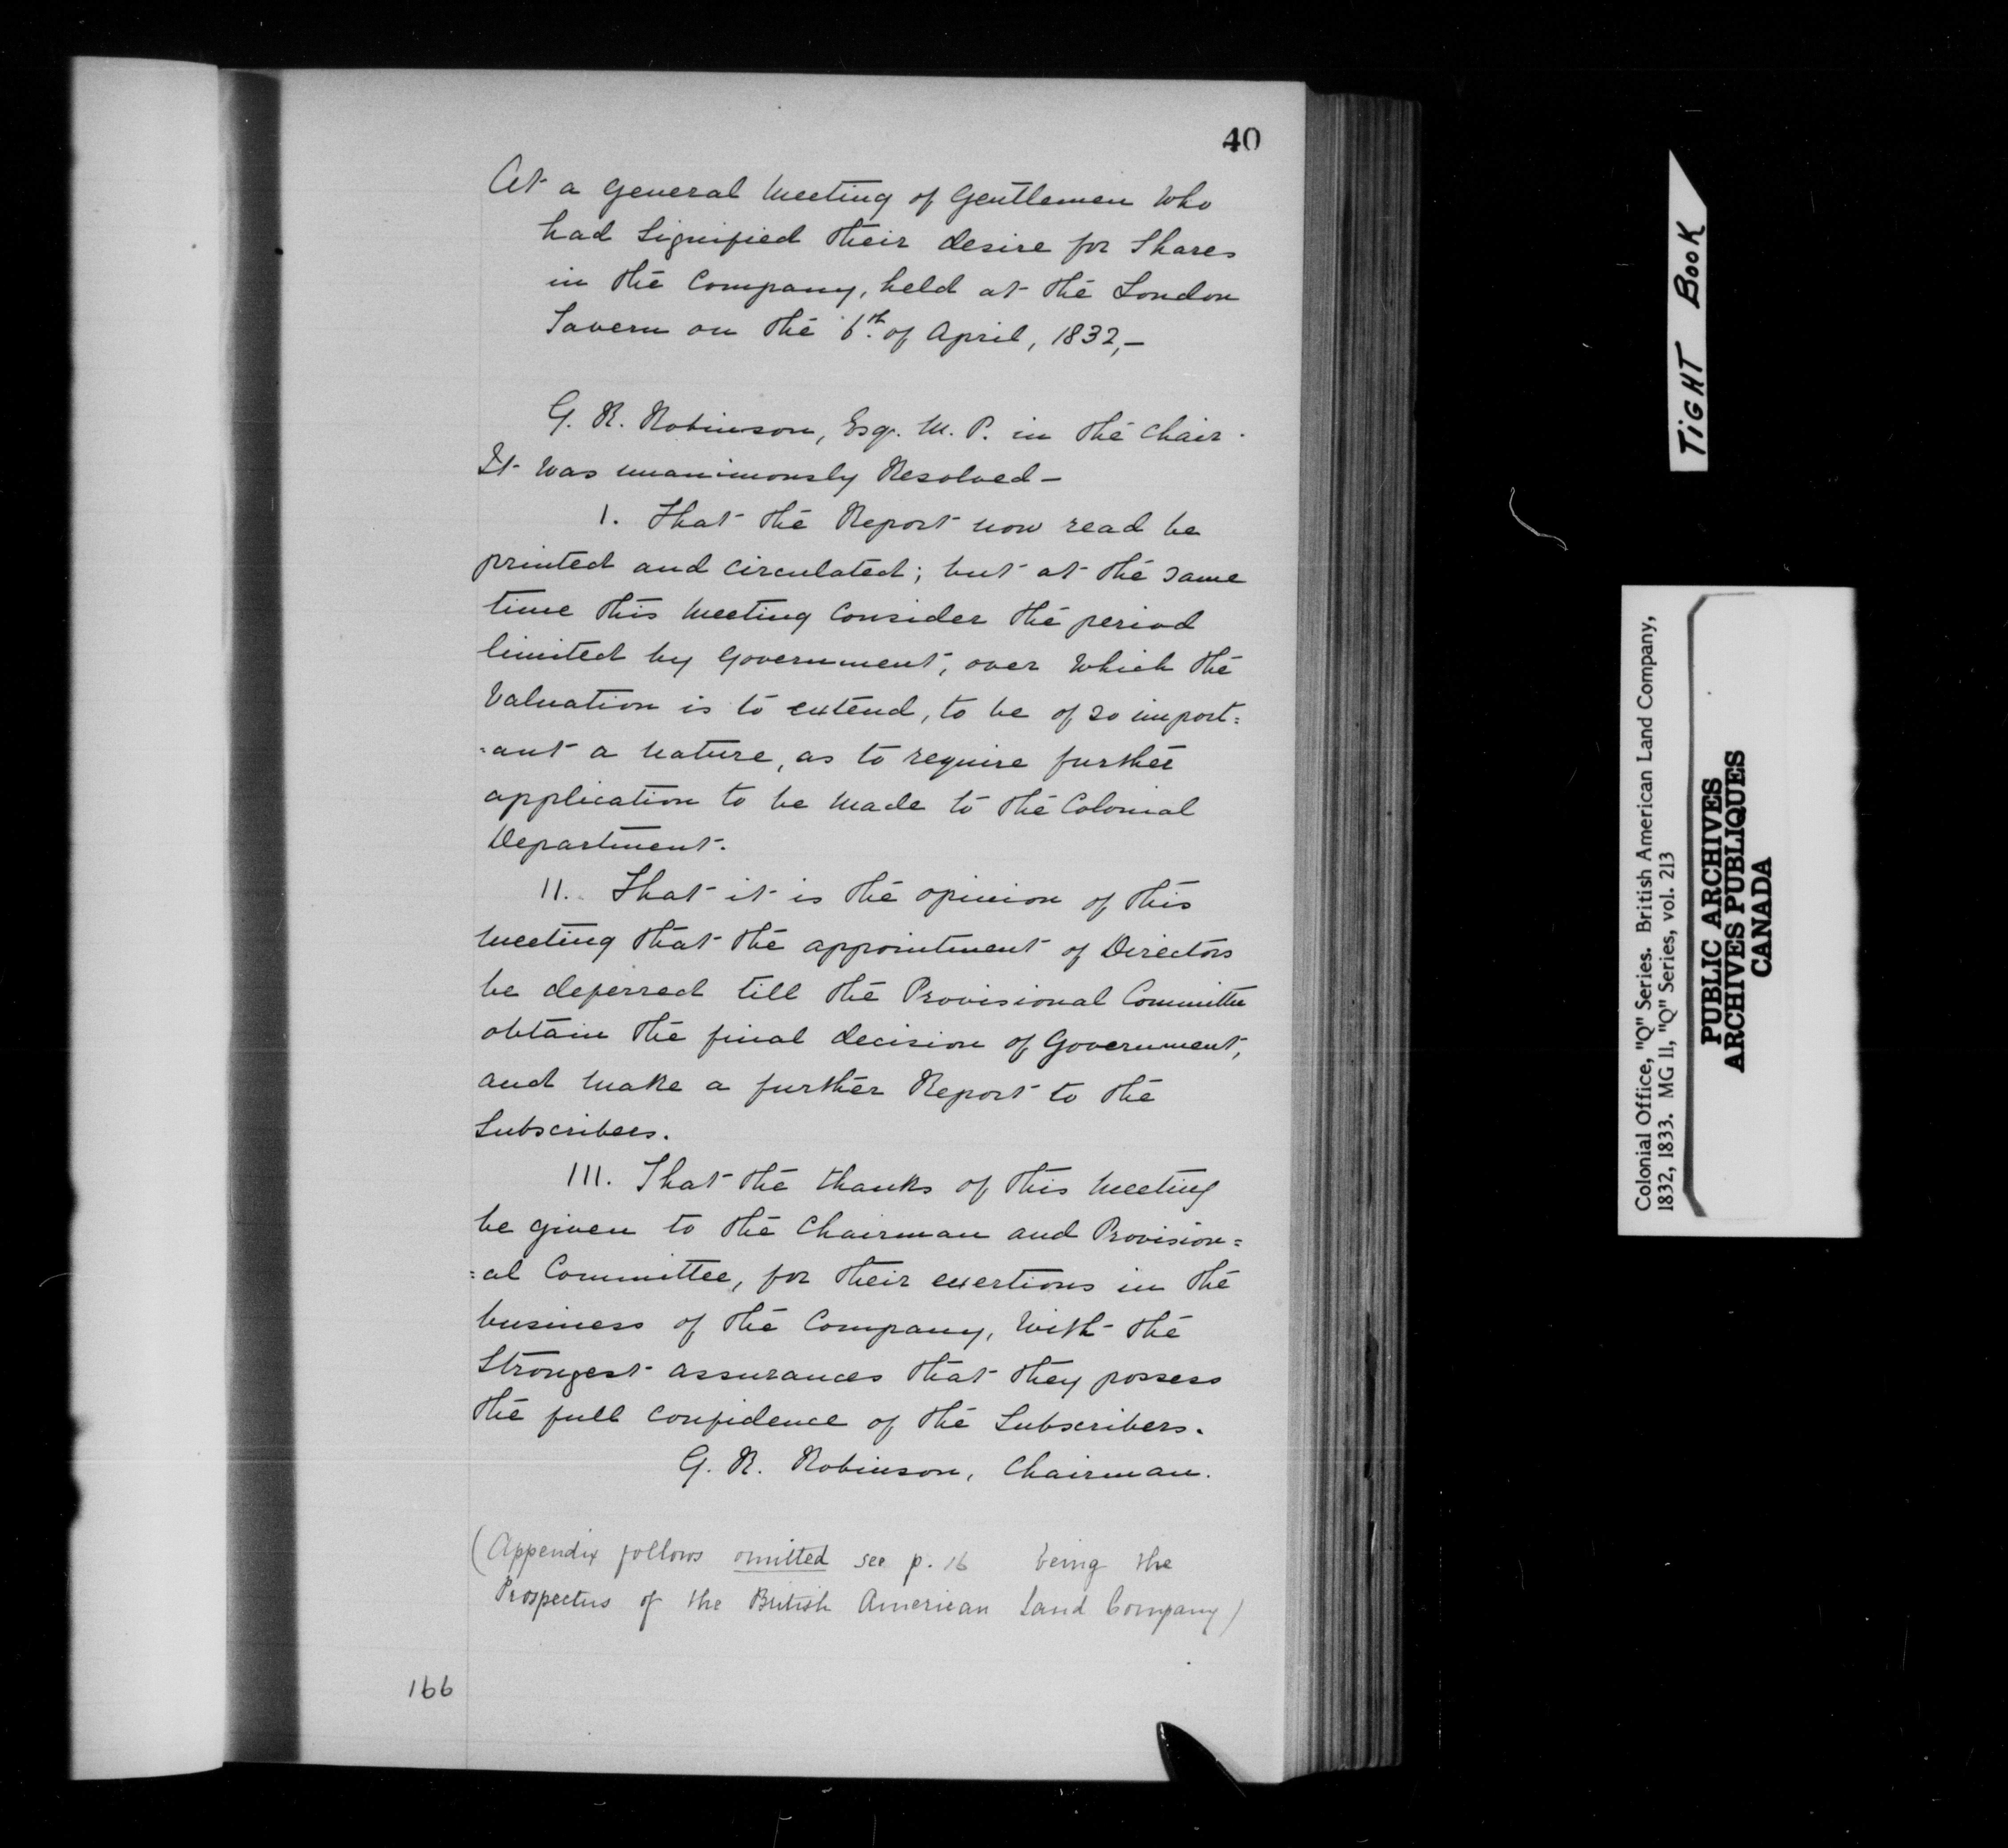 40
At a General Meeting of Gentlemen Who
had Signified their desire for Shares
in the Company, held at the London
Tavern on the 6th. of April, 1832,—
G. R. Robinson, Esq. M. P. in the Chair.
It Was unanimously Resolved—
1. That the Report now read be
printed and circulated; but at the same
time this Meeting Consider the period
limited by Government, over Which the
Valuation is to extend, to be of so import=
=ant a Nature, as to require further
application to be Made to the Colonial
Department.
11. That it is the opinion of this
Meeting that the appointment of Directors
be deferred till the Provisional Committee
obtain the final decision of Government,
and Make a further Report to the
Subscribers.
111. That the thanks of this Meeting
be given to the Chairman and Provision=
=al Committee, for their exertions in the
business of the Company, With the
Strongest assurances that they possess
the full confidence of the Subscribers.
G. R. Robinson, Chairman.
(Appendix follows omitted see p. 16 being the
Prospectus of the British American Land Company)
166
TIGHT BOOK
Colonial Office, "Q" Series. British American Land Company,
1832, 1833. MG 11, "Q" Series, vol. 213
PUBLIC ARCHIVES
ARCHIVES PUBLIQUES
CANADA